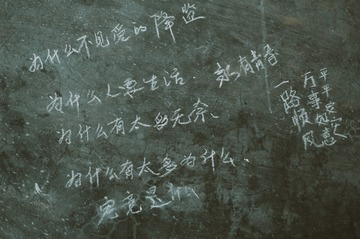 为什么不见爱的降监
为什么人要生活
为什么有太多无奈、
为什么有太多为什么.
究竟是什么
平平安安
万事如意
一路顺风